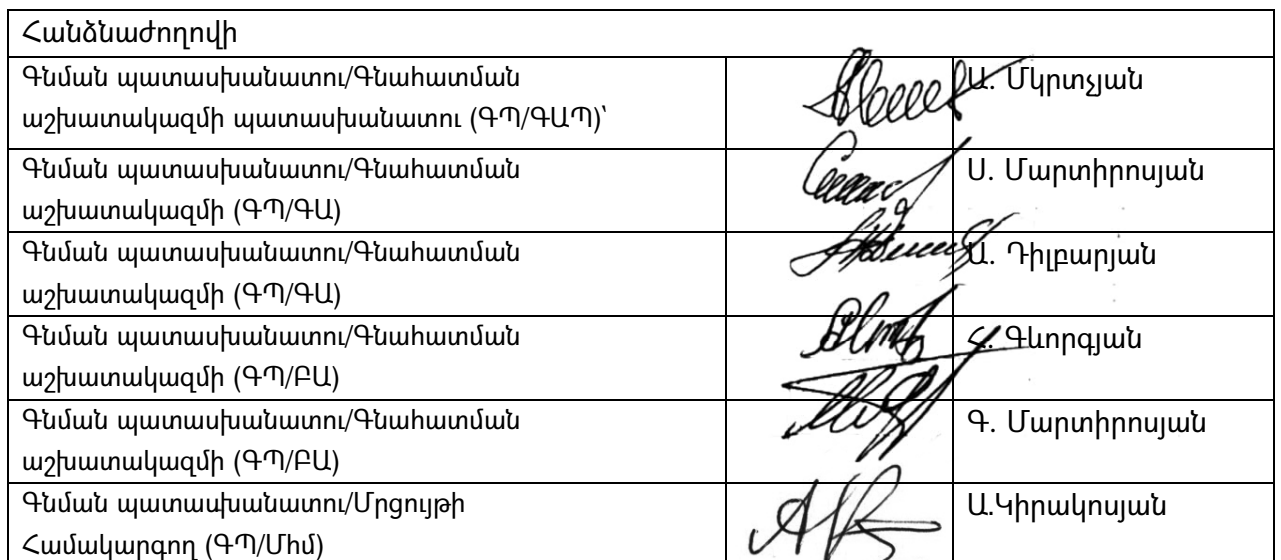 Հանձնաժողովի
Գնման պատասխանատու/Գնահատման
աշխատակազմի պատասխանատու (ԳՊ/ԳԱՊ)՝
Ա. Մկրտչյան
Գնման պատասխանատու/Գնահատման
աշխատակազմի (ԳՊ/ԳԱ)
Ս. Մարտիրոսյան
Գնման պատասխանատու/Գնահատման
աշխատակազմի (ԳՊ/ԳԱ)
Ա. Դիլբարյան
Գնման պատասխանատու/Գնահատման
աշխատակազմի (ԳՊ/ԲԱ)
Հ. Գևորգյան
Գնման պատասխանատու/Գնահատման
աշխատակազմի (ԳՊ/ԲԱ)
Գ. Մարտիրոսյան
Գնման պատասխանատու/Մրցույթի
Համակարգող (ԳՊ/Մհմ)
Ա.Կիրակոսյան